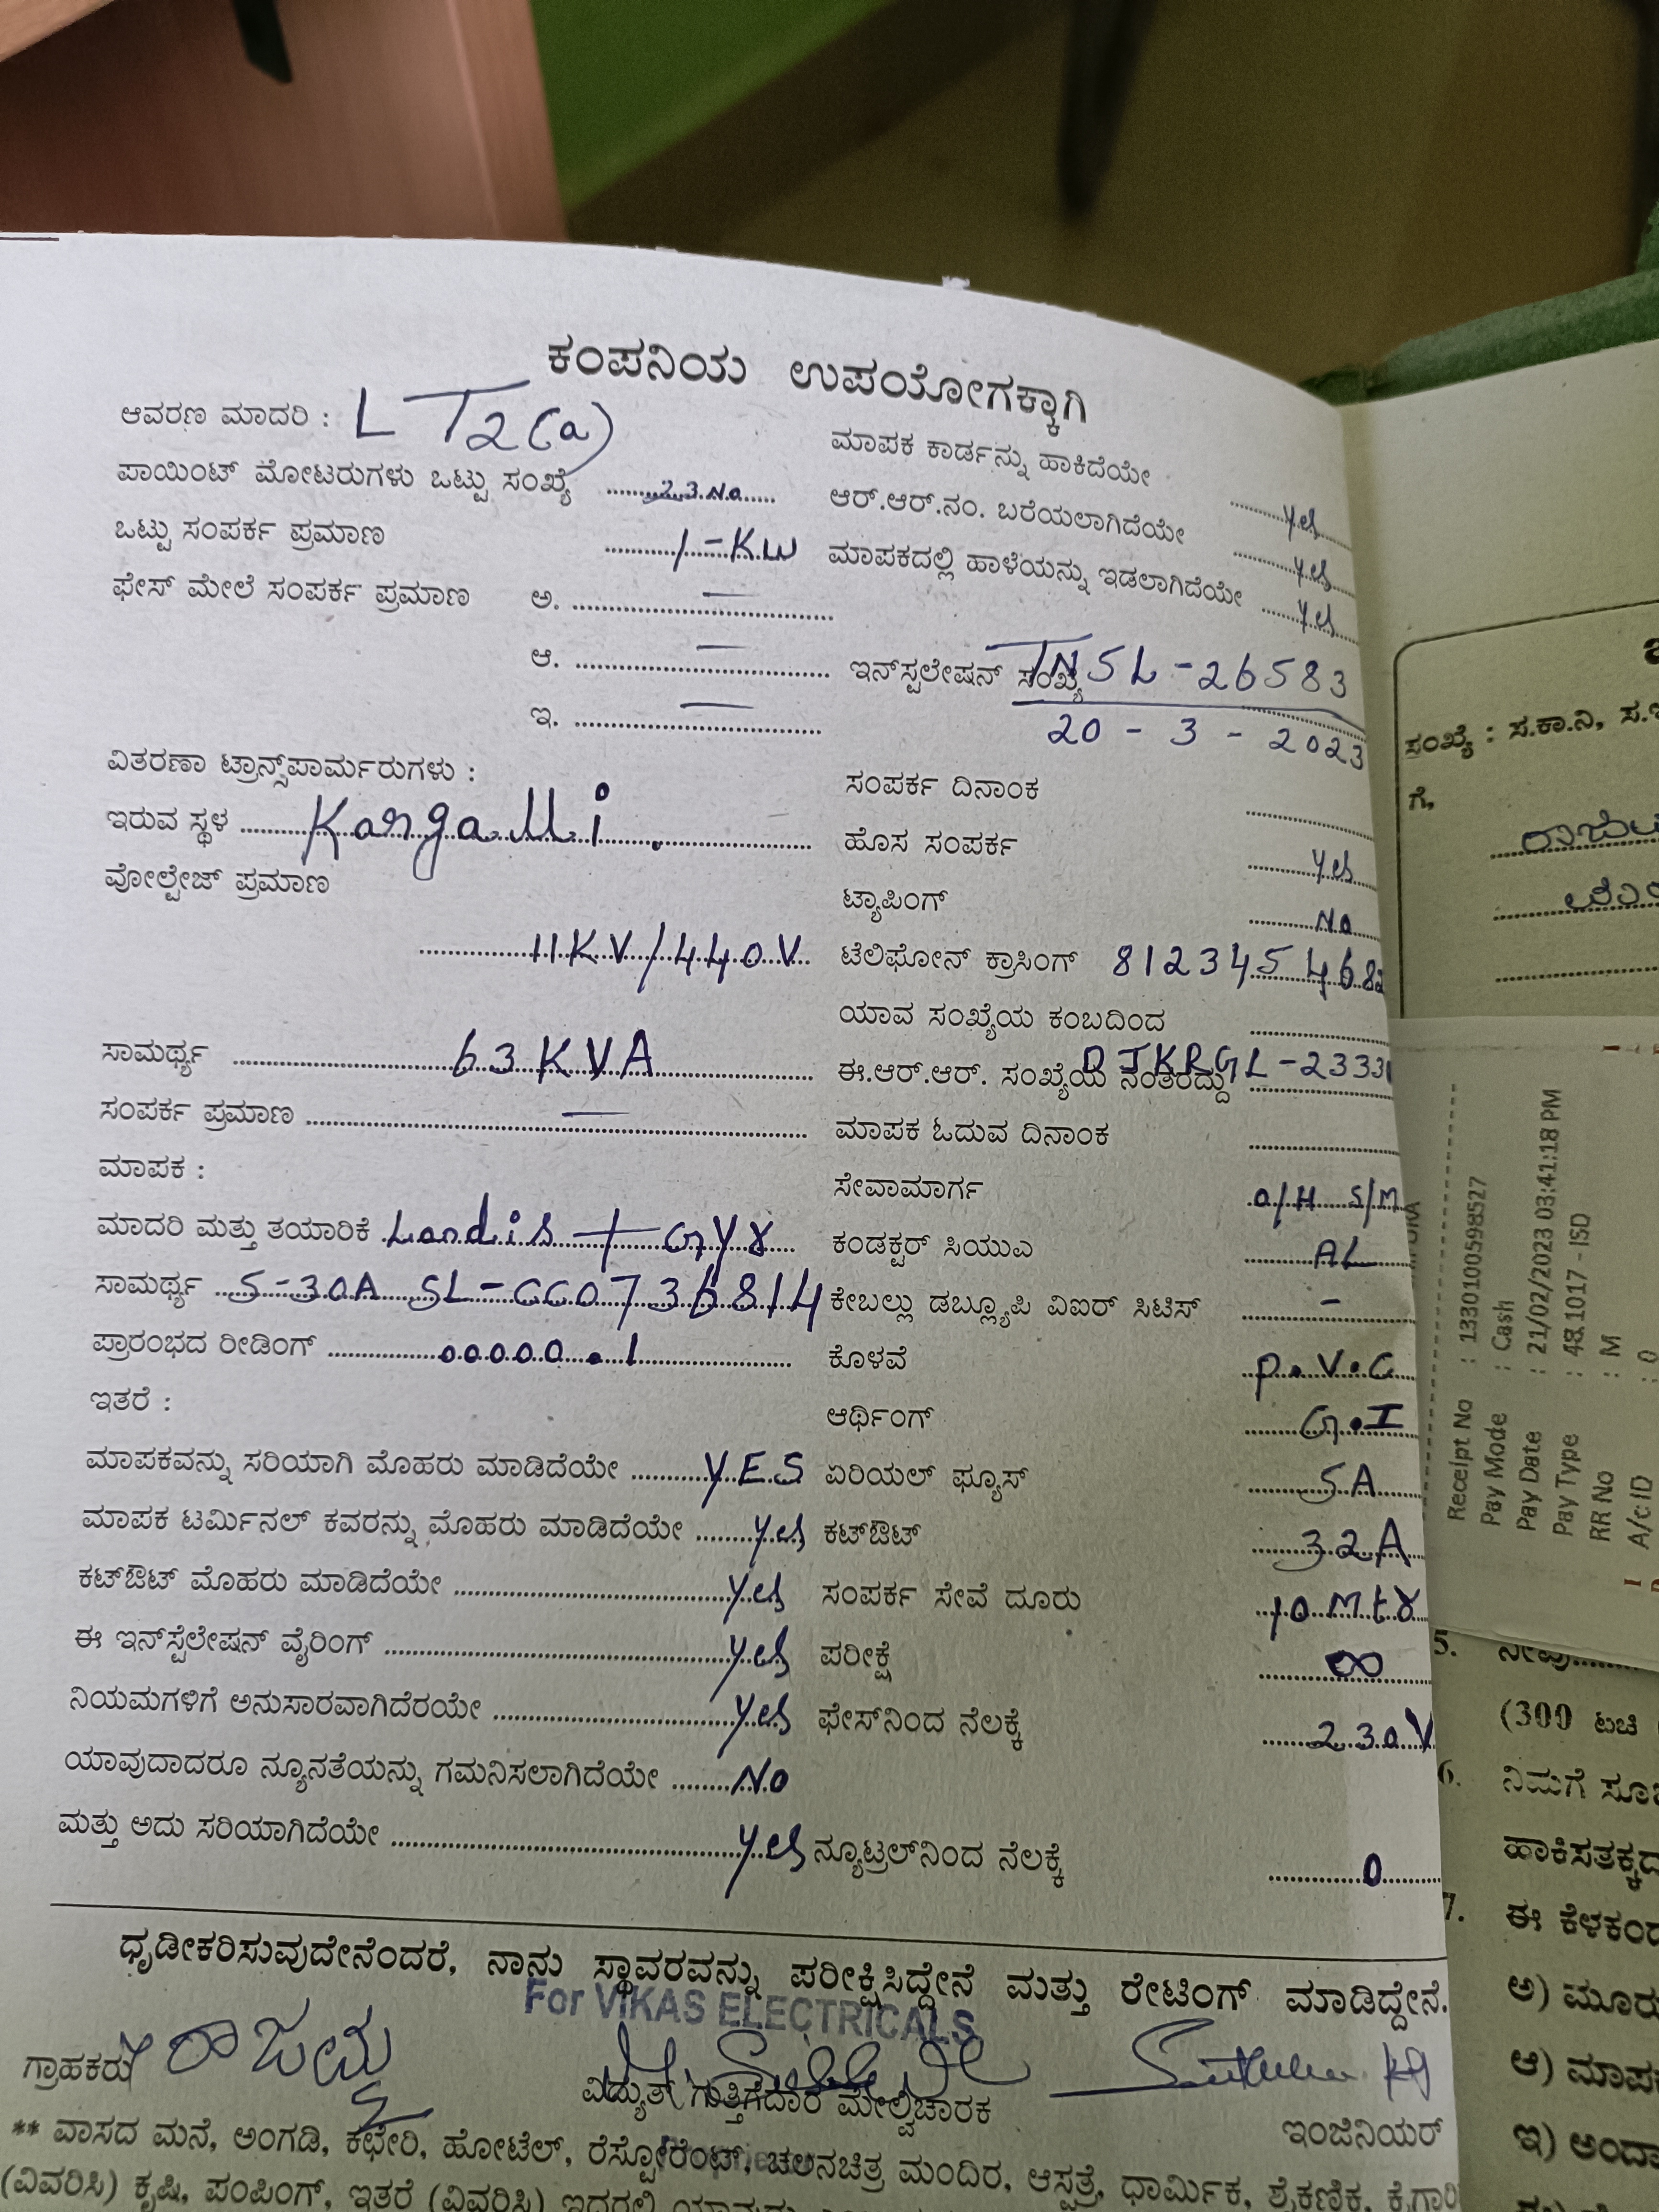 ಕಂಪನಿಯ ಉಪಯೋಗಕ್ಕಾಗಿ
ಆವರಣ ಮಾದರಿ : LT2(a)
ಪಾಯಿಂಟ್ ಮೋಟರುಗಳು ಒಟ್ಟು ಸಂಖ್ಯೆ 23 No
ಒಟ್ಟು ಸಂಪರ್ಕ ಪ್ರಮಾಣ 1-KW
ಫೇಸ್ ಮೇಲೆ ಸಂಪರ್ಕ ಪ್ರಮಾಣ ಅ. —
ಆ. —
ಇ. —
ವಿತರಣಾ ಟ್ರಾನ್ಸ್‌ಪಾರ್ಮರುಗಳು :
ಇರುವ ಸ್ಥಳ Kargalli.
ವೋಲ್ಟೇಜ್ ಪ್ರಮಾಣ
11KV/440V
ಸಾಮರ್ಥ್ಯ 63 KVA
ಸಂಪರ್ಕ ಪ್ರಮಾಣ —
ಮಾಪಕ :
ಮಾದರಿ ಮತ್ತು ತಯಾರಿಕೆ Landis + Gyr
ಸಾಮರ್ಥ್ಯ 5-30A SL-CC0736814
ಪ್ರಾರಂಭದ ರೀಡಿಂಗ್ 00000.1
ಇತರೆ :
ಮಾಪಕವನ್ನು ಸರಿಯಾಗಿ ಮೊಹರು ಮಾಡಿದೆಯೇ YES
ಮಾಪಕ ಟರ್ಮಿನಲ್ ಕವರನ್ನು ಮೊಹರು ಮಾಡಿದೆಯೇ Yes
ಕಟ್‌ಔಟ್ ಮೊಹರು ಮಾಡಿದೆಯೇ Yes
ಈ ಇನ್‌ಸ್ಪೆಲೇಷನ್ ವೈರಿಂಗ್ Yes
ನಿಯಮಗಳಿಗೆ ಅನುಸಾರವಾಗಿದೆರಯೇ Yes
ಯಾವುದಾದರೂ ನ್ಯೂನತೆಯನ್ನು ಗಮನಿಸಲಾಗಿದೆಯೇ No
ಮತ್ತು ಅದು ಸರಿಯಾಗಿದೆಯೇ Yes
ಮಾಪಕ ಕಾರ್ಡನ್ನು ಹಾಕಿದೆಯೇ Yes
ಆರ್.ಆರ್.ನಂ. ಬರೆಯಲಾಗಿದೆಯೇ Yes
ಮಾಪಕದಲ್ಲಿ ಹಾಳೆಯನ್ನು ಇಡಲಾಗಿದೆಯೇ Yes
ಇನ್‌ಸ್ಪಲೇಷನ್ ಸಂಖ್ಯೆ TNSL-26583
20 - 3 - 2023
ಸಂಪರ್ಕ ದಿನಾಂಕ
ಹೊಸ ಸಂಪರ್ಕ Yes
ಟ್ಯಾಪಿಂಗ್ No
ಟೆಲಿಫೋನ್ ಕ್ರಾಸಿಂಗ್ 812345468
ಯಾವ ಸಂಖ್ಯೆಯ ಕಂಬದಿಂದ
ಈ.ಆರ್.ಆರ್. ಸಂಖ್ಯೆಯ ನಂತರದ್ದು DJKRGL-2333
ಮಾಪಕ ಓದುವ ದಿನಾಂಕ
ಸೇವಾಮಾರ್ಗ O/H S/M
ಕಂಡಕ್ಟರ್ ಸಿಯುಎ AL
ಕೇಬಲ್ಲು ಡಬ್ಲ್ಯೂಪಿ ವಿಐರ್ ಸಿಟಿಸ್ -
ಕೊಳವೆ P.V.C
ಆರ್ಥಿಂಗ್ G.I
ಏರಿಯಲ್ ಫ್ಯೂಸ್ 5A
ಕಟ್‌ಔಟ್ 32A
ಸಂಪರ್ಕ ಸೇವೆ ದೂರು 10 Mtr
ಪರೀಕ್ಷೆ ∞
ಫೇಸ್‌ನಿಂದ ನೆಲಕ್ಕೆ 230V
ನ್ಯೂಟ್ರಲ್‌ನಿಂದ ನೆಲಕ್ಕೆ 0
ಧೃಡೀಕರಿಸುವುದೇನೆಂದರೆ, ನಾನು ಸ್ಥಾವರವನ್ನು ಪರೀಕ್ಷಿಸಿದ್ದೇನೆ ಮತ್ತು ರೇಟಿಂಗ್ ಮಾಡಿದ್ದೇನೆ.
For VIKAS ELECTRICALS
ಗ್ರಾಹಕರು ರಾಜಮ್ಮ
ವಿದ್ಯುತ್ ಗುತ್ತಿಗೆದಾರ ಮೇಲ್ವಿಚಾರಕ
ಇಂಜಿನಿಯರ್
** ವಾಸದ ಮನೆ, ಅಂಗಡಿ, ಕಛೇರಿ, ಹೋಟೆಲ್, ರೆಸ್ಟೋರೆಂಟ್, ಚಲನಚಿತ್ರ ಮಂದಿರ, ಆಸ್ಪತ್ರೆ, ಧಾರ್ಮಿಕ, ಶೈಕಣಿಕ, ಕೈಗಾರಿ
(ವಿವರಿಸಿ) ಕೃಷಿ, ಪಂಪಿಂಗ್, ಇತರೆ (ವಿವರಿಸಿ)
ಸಂಖ್ಯೆ : ಸ.ಕಾ.ನಿ, ಸ.ಇ
ಗೆ,
Receipt No : 133010059852​7
Pay Mode : Cash
Pay Date : 21/02/2023 03:41:18 PM
Pay Type : 48.1017 - ISD
RR No : M
A/c ID : 0
5. ನೀವು
(300 ಟಚಿ
6. ನಿಮಗೆ ಸೂಚ
ಹಾಕಿಸತಕ್ಕದ
7. ಈ ಕೆಳಕಂಡ
ಅ) ಮೂರು
ಆ) ಮಾಪಕ
ಇ) ಅಂದಾ